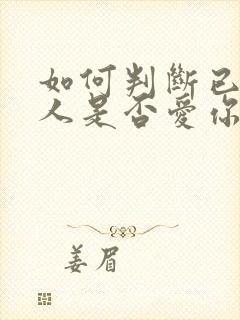 如何判斷已
人是否愛你
姜眉